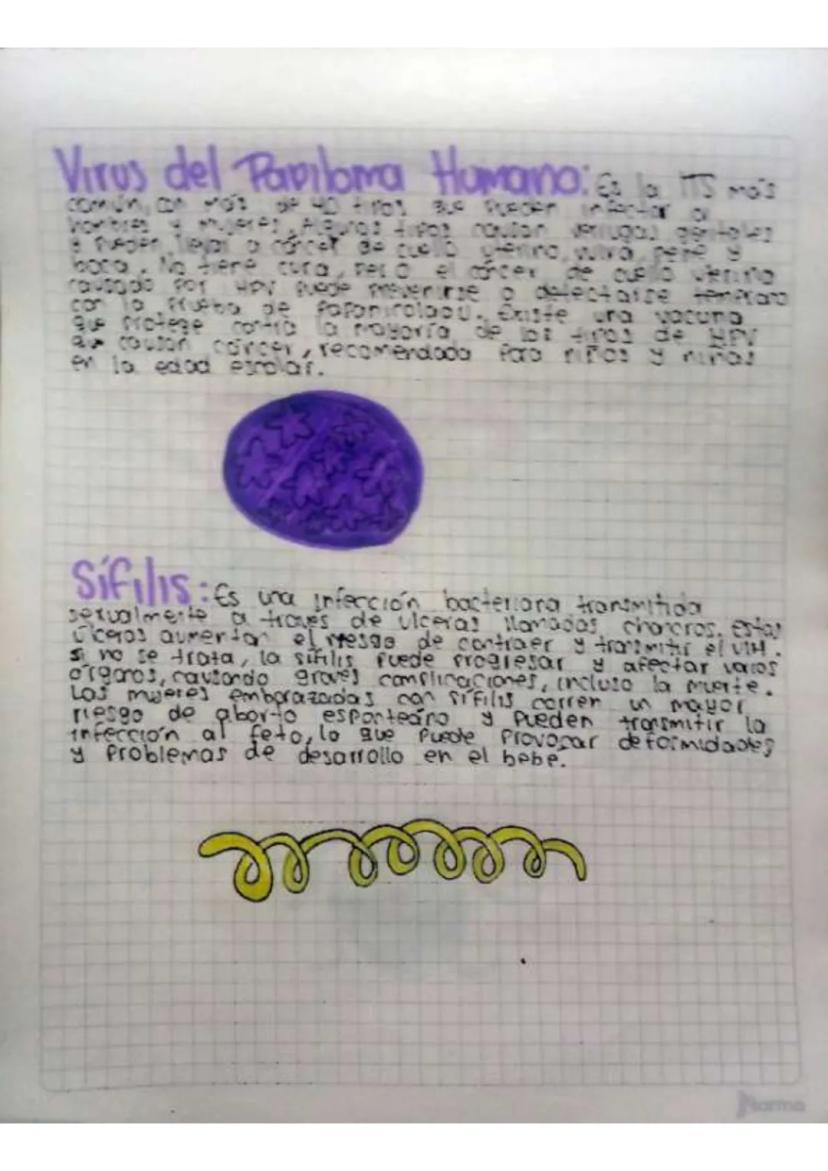 Virus del Papiloma Humano: Es la ITS más
común, con más de 40 tipos que pueden infectar a
hombres y mujeres. Algunos tipos causan verrugas genitales
y pueden llevar a cáncer de cuello uterino, vulva, pene y
boca. No tiene cura, pero el cáncer de cuello uterino
causado por HPV puede prevenirse o detectarse temprano
con la prueba de papanicolaou. Existe una vacuna
que protege contra la mayoría de los tipos de HPV
que causan cáncer, recomendada para niños y niñas
en la edad escolar.
Sífilis: Es una infección bacteriana transmitida
sexualmente a través de úlceras llamadas chancros. Estas
úlceras aumentan el riesgo de contraer y transmitir el VIH.
si no se trata, la sífilis puede progresar y afectar varios
órganos, causando graves complicaciones, incluso la muerte.
Las mujeres embarazadas con sífilis corren un mayor
riesgo de aborto esponteáno y pueden transmitir la
infección al feto, lo que puede provocar deformidades
y problemas de desarrollo en el bebe.
Norma